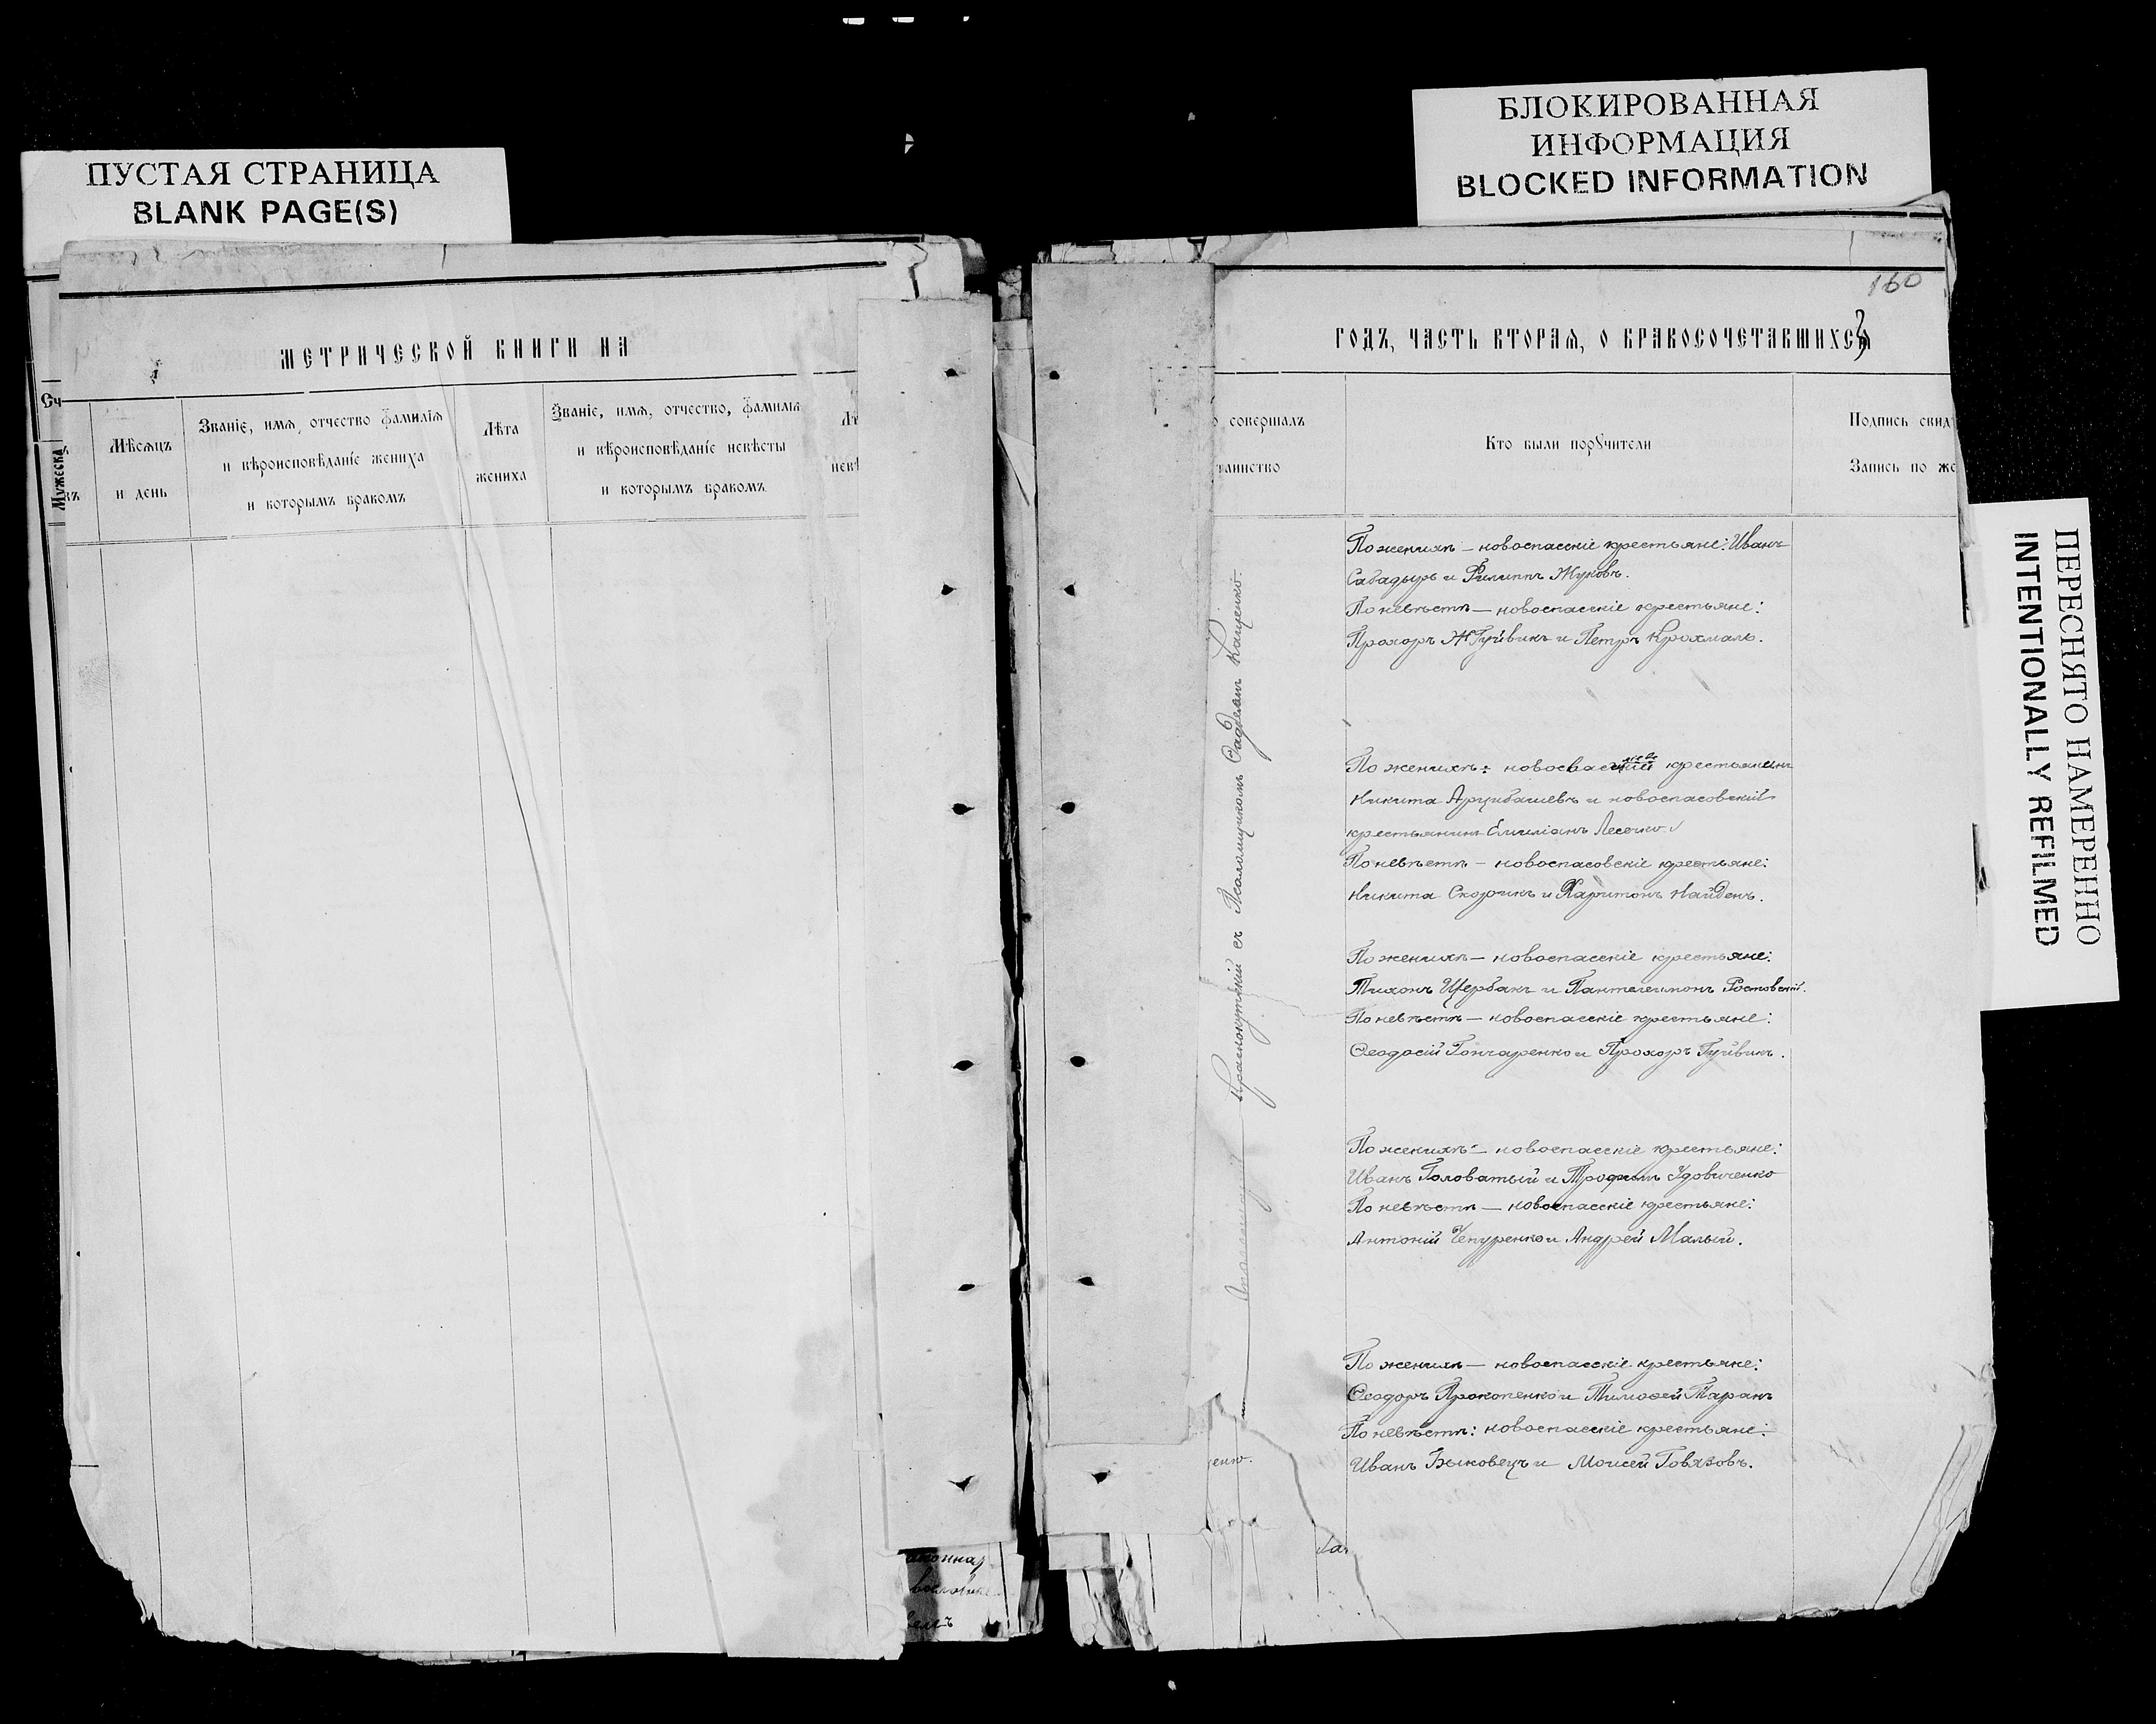 ПУСТАЯ СТРАНИЦА
BLANK PAGE(S)
БЛОКИРОВАННАЯ
ИНФОРМАЦИЯ
BLOCKED INFORMATION
ПЕРЕСНЯТО НАМЕРЕННО
INTENTIONALLY REFILMED
МЕТРИЧЕСКОЙ КНИГИ НА
Сч
Мужеска
Мѣсяцъ
и день
Званіе, имя, отчество фамилія
и вѣроисповѣданіе жениха
и которымъ бракомъ
Лѣта
жениха
Званіе, имя, отчество, фамилія
и вѣроисповѣданіе невѣсты
и которымъ бракомъ
Лѣ
невѣ
160
ГОДЪ, ЧАСТЬ ВТОРАЯ, О БРАКОСОЧЕТАВШИХСЯ
о совершалъ
таинство
Кто были поручители
Подпись свид
Запись по же
Краснокутскій съ Псаломщикомъ Фаддеемъ Кащенко.
По женихѣ – новоспасскіе крестьяне: Иванъ
Сабадырь и Филиппъ Жуковъ.
По невѣстѣ – новоспасскіе крестьяне:
Прохоръ Гуйвикъ и Петръ Крохмаль.
По женихѣ: крестьянинъ
Никита Арцибашевъ и новоспасовскій
крестьянинъ Емиліанъ Лесечко
По невѣстѣ – новоспасовскіе крестьяне:
Никита Скорикъ и Харитонъ Найденъ.
По женихѣ – новоспасскіе крестьяне:
Тихонъ Щербакъ и Пантелеимонъ Ростовскій.
По невѣстѣ – новоспасскіе крестьяне:
Ѳеодосій Гончаренко и Прохоръ Гуйвикъ.
По женихѣ – новоспасскіе крестьяне:
Иванъ Головатый и Трофимъ Удовиченко
По невѣстѣ – новоспасскіе крестьяне:
Антоній Чепуренко и Андрей Малый.
По женихѣ – новоспасскіе крестьяне:
Ѳеодоръ Прокопенко и Тимоѳей Таранъ
По невѣстѣ: новоспасскіе крестьяне:
Иванъ Быковецъ и Моисей Говязовъ.